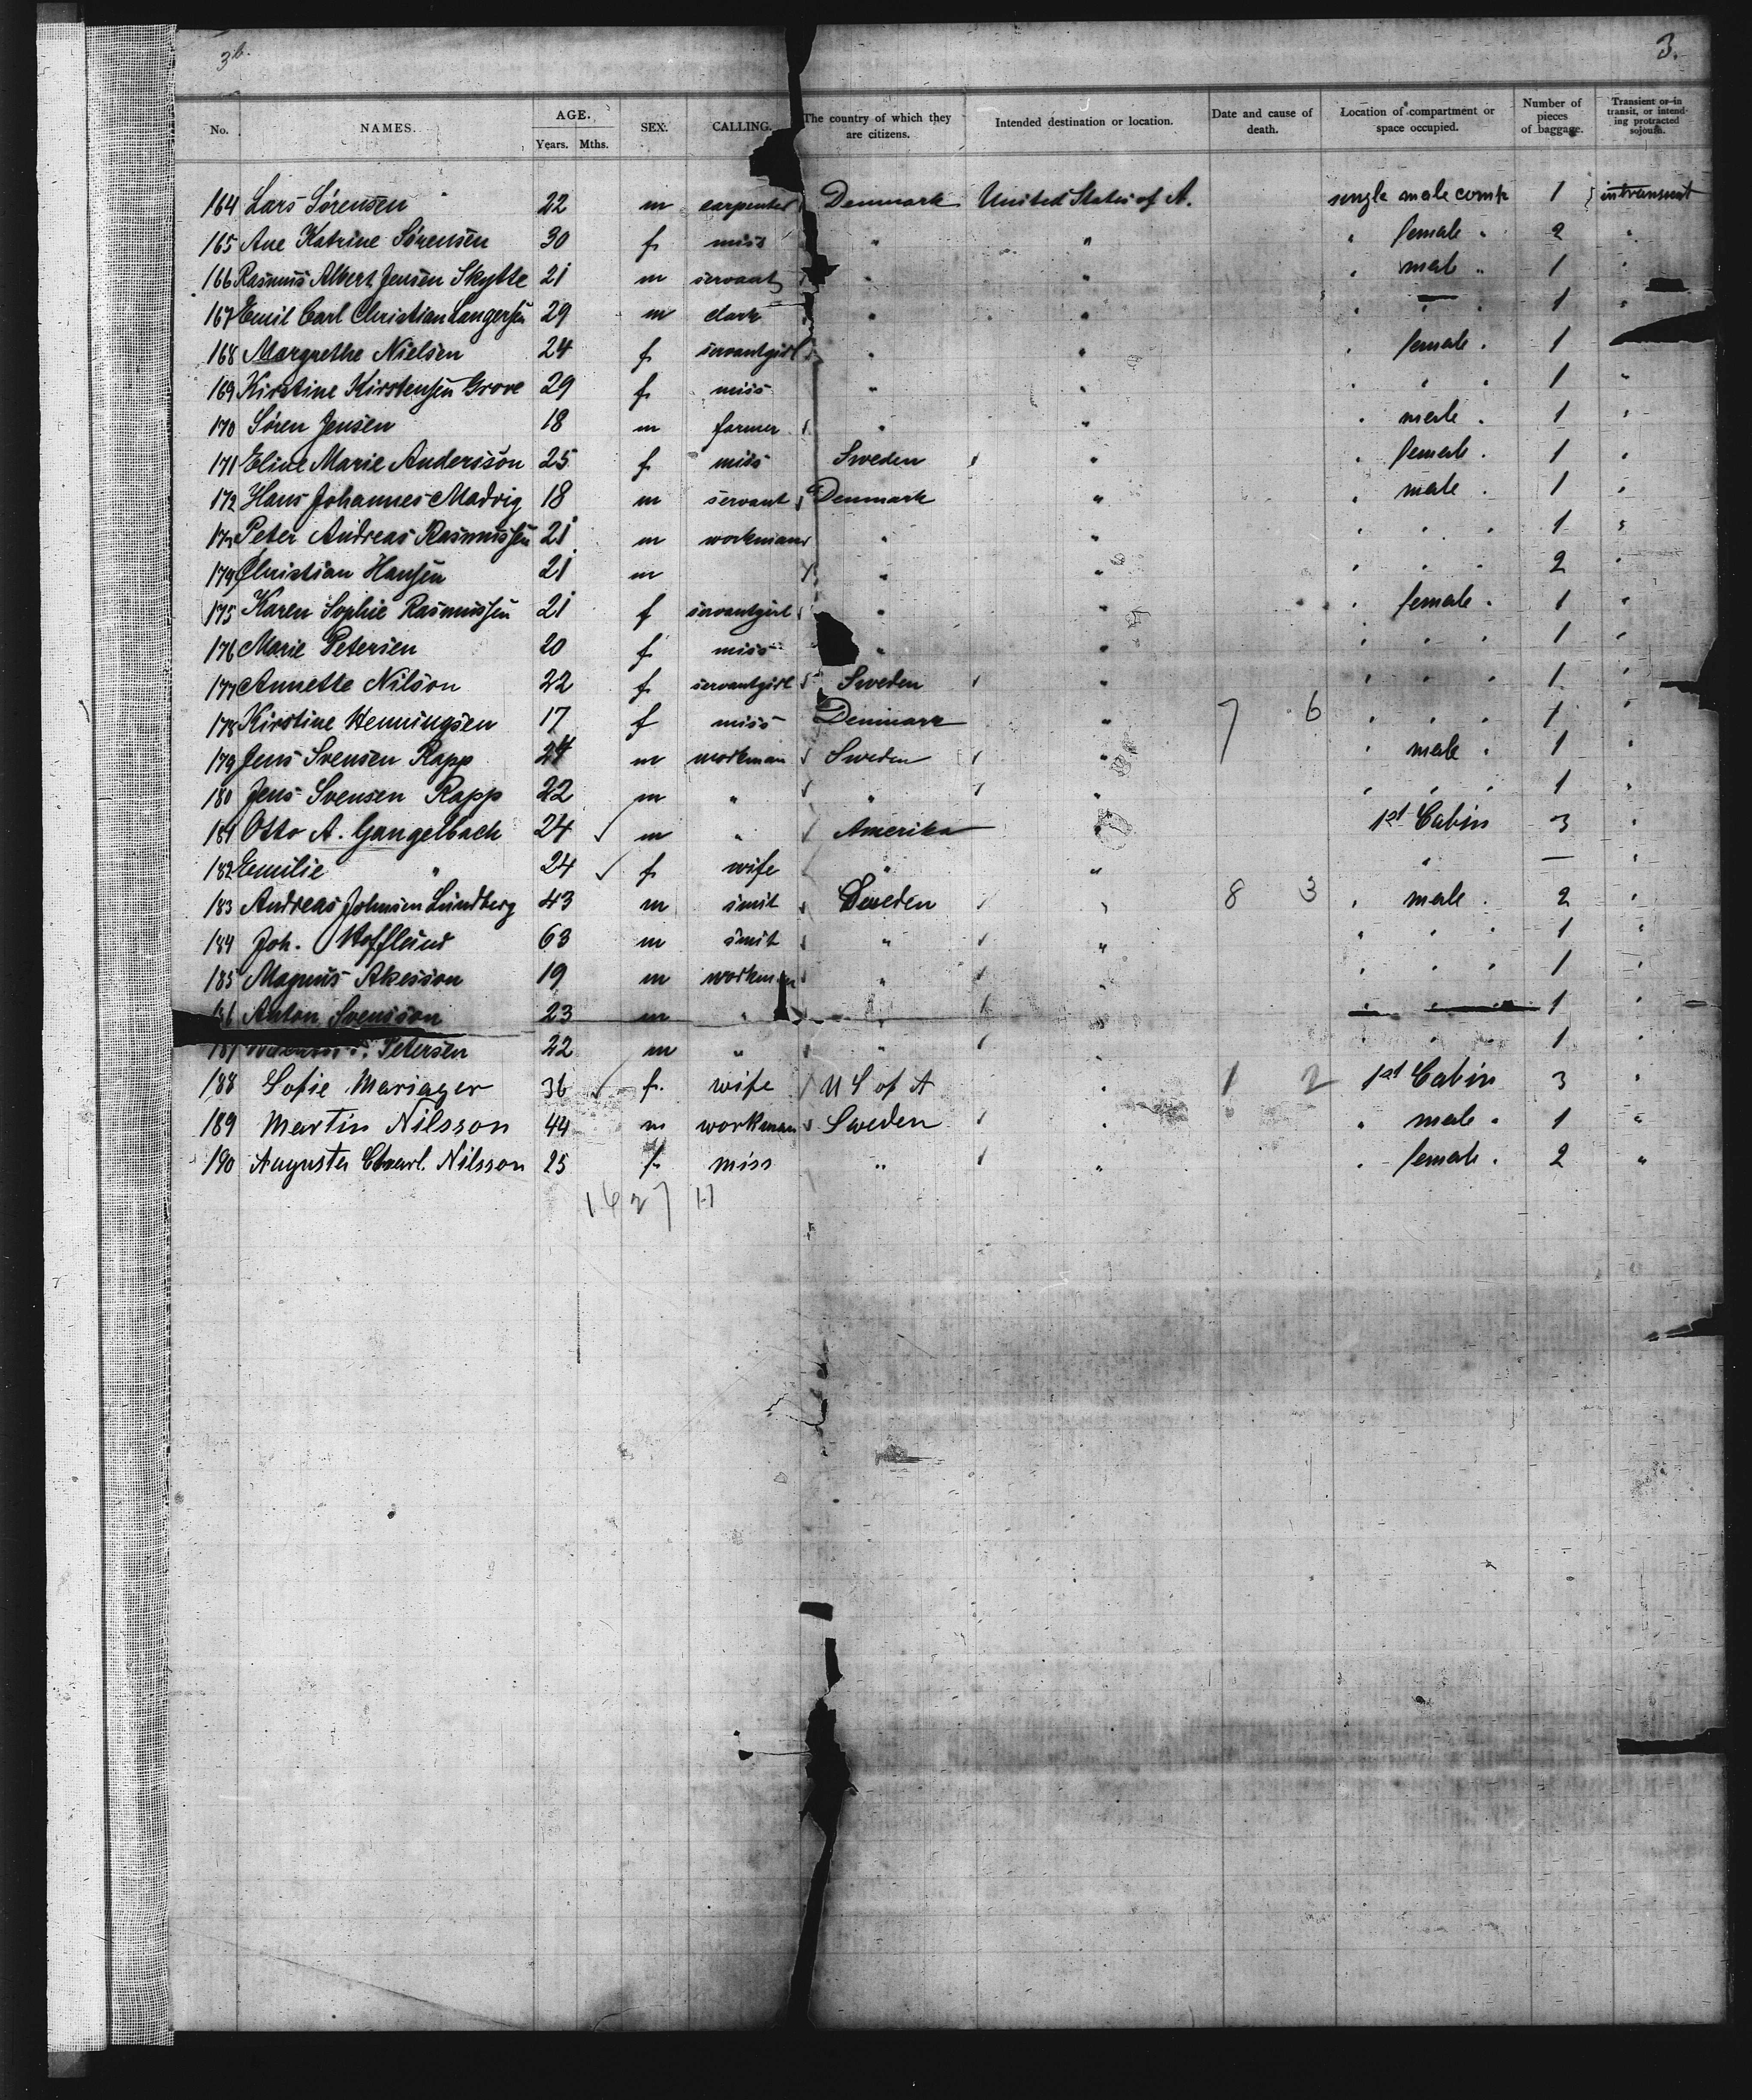 3b. 3.
No. NAMES. AGE. Years. Mths. SEX. CALLING. The country of which they are citizens. Intended destination or location. Date and cause of death. Location of compartment or space occupied. Number of pieces of baggage. Transient or in transit, or intending protracted sojourn.
164 Lars Sörensen 22 m carpenter Denmark United States of A. single male comp 1 intransint
165 Ane Katrine Sörensen 30 f miss " " " female " 2 "
166 Rasmus Albert Jensen Skytte 21 m servant " " " male " 1 "
167 Emil Carl Christian Langersen 29 m clark " " " " " 1 "
168 Margrethe Nielsen 24 f servantgirl " " " female " 1
169 Kirstine Kirstensen Grove 29 f miss " " " " " 1 "
170 Sören Jensen 18 m farmer " " " male " 1 "
171 Eline Marie Andersson 25 f miss Sweden " " female " 1 "
172 Hans Johannes Madvig 18 m servant Denmark " " male " 1 "
173 Peter Andreas Rasmussen 21 m workman " " " " " 1 "
174 Christian Hansen 21 m " " " " " 2 "
175 Karen Sophie Rasmussen 21 f servantgirl " " " female " 1 "
176 Marie Petersen 20 f miss " " " " " 1 "
177 Annette Nilson 22 f servantgirl Sweden " " " " 1 "
178 Kirstine Henningsen 17 f miss Denmark " 7 6 " " " 1 "
179 Jens Svensen Rapp 24 m workman Sweden " " male " 1 "
180 Jens Svensen Rapp 22 m " " " " " " 1 "
181 Otto A. Gangelbach 24 m " Amerika " 1st Cabin 3 "
182 Emilie " 24 f wife " " " — "
183 Andreas Johnsen Lundberg 43 m smit Sweden " 8 3 " male " 2 "
184 Joh. Hofflund 63 m smit " " " " " 1 "
185 Magnus Akesson 19 m workman " " " " " 1 "
186 Anton Svensson 23 m " " " " 1 "
187 Petersen 22 m " " " " " " 1 "
188 Sofie Mariager 36 f. wife U S of A " 1 2 1st Cabin 3 "
189 Martin Nilsson 44 m workman Sweden " " male " 1 "
190 Augusta Charl. Nilsson 25 f. miss " " " female " 2 "
16 27 17